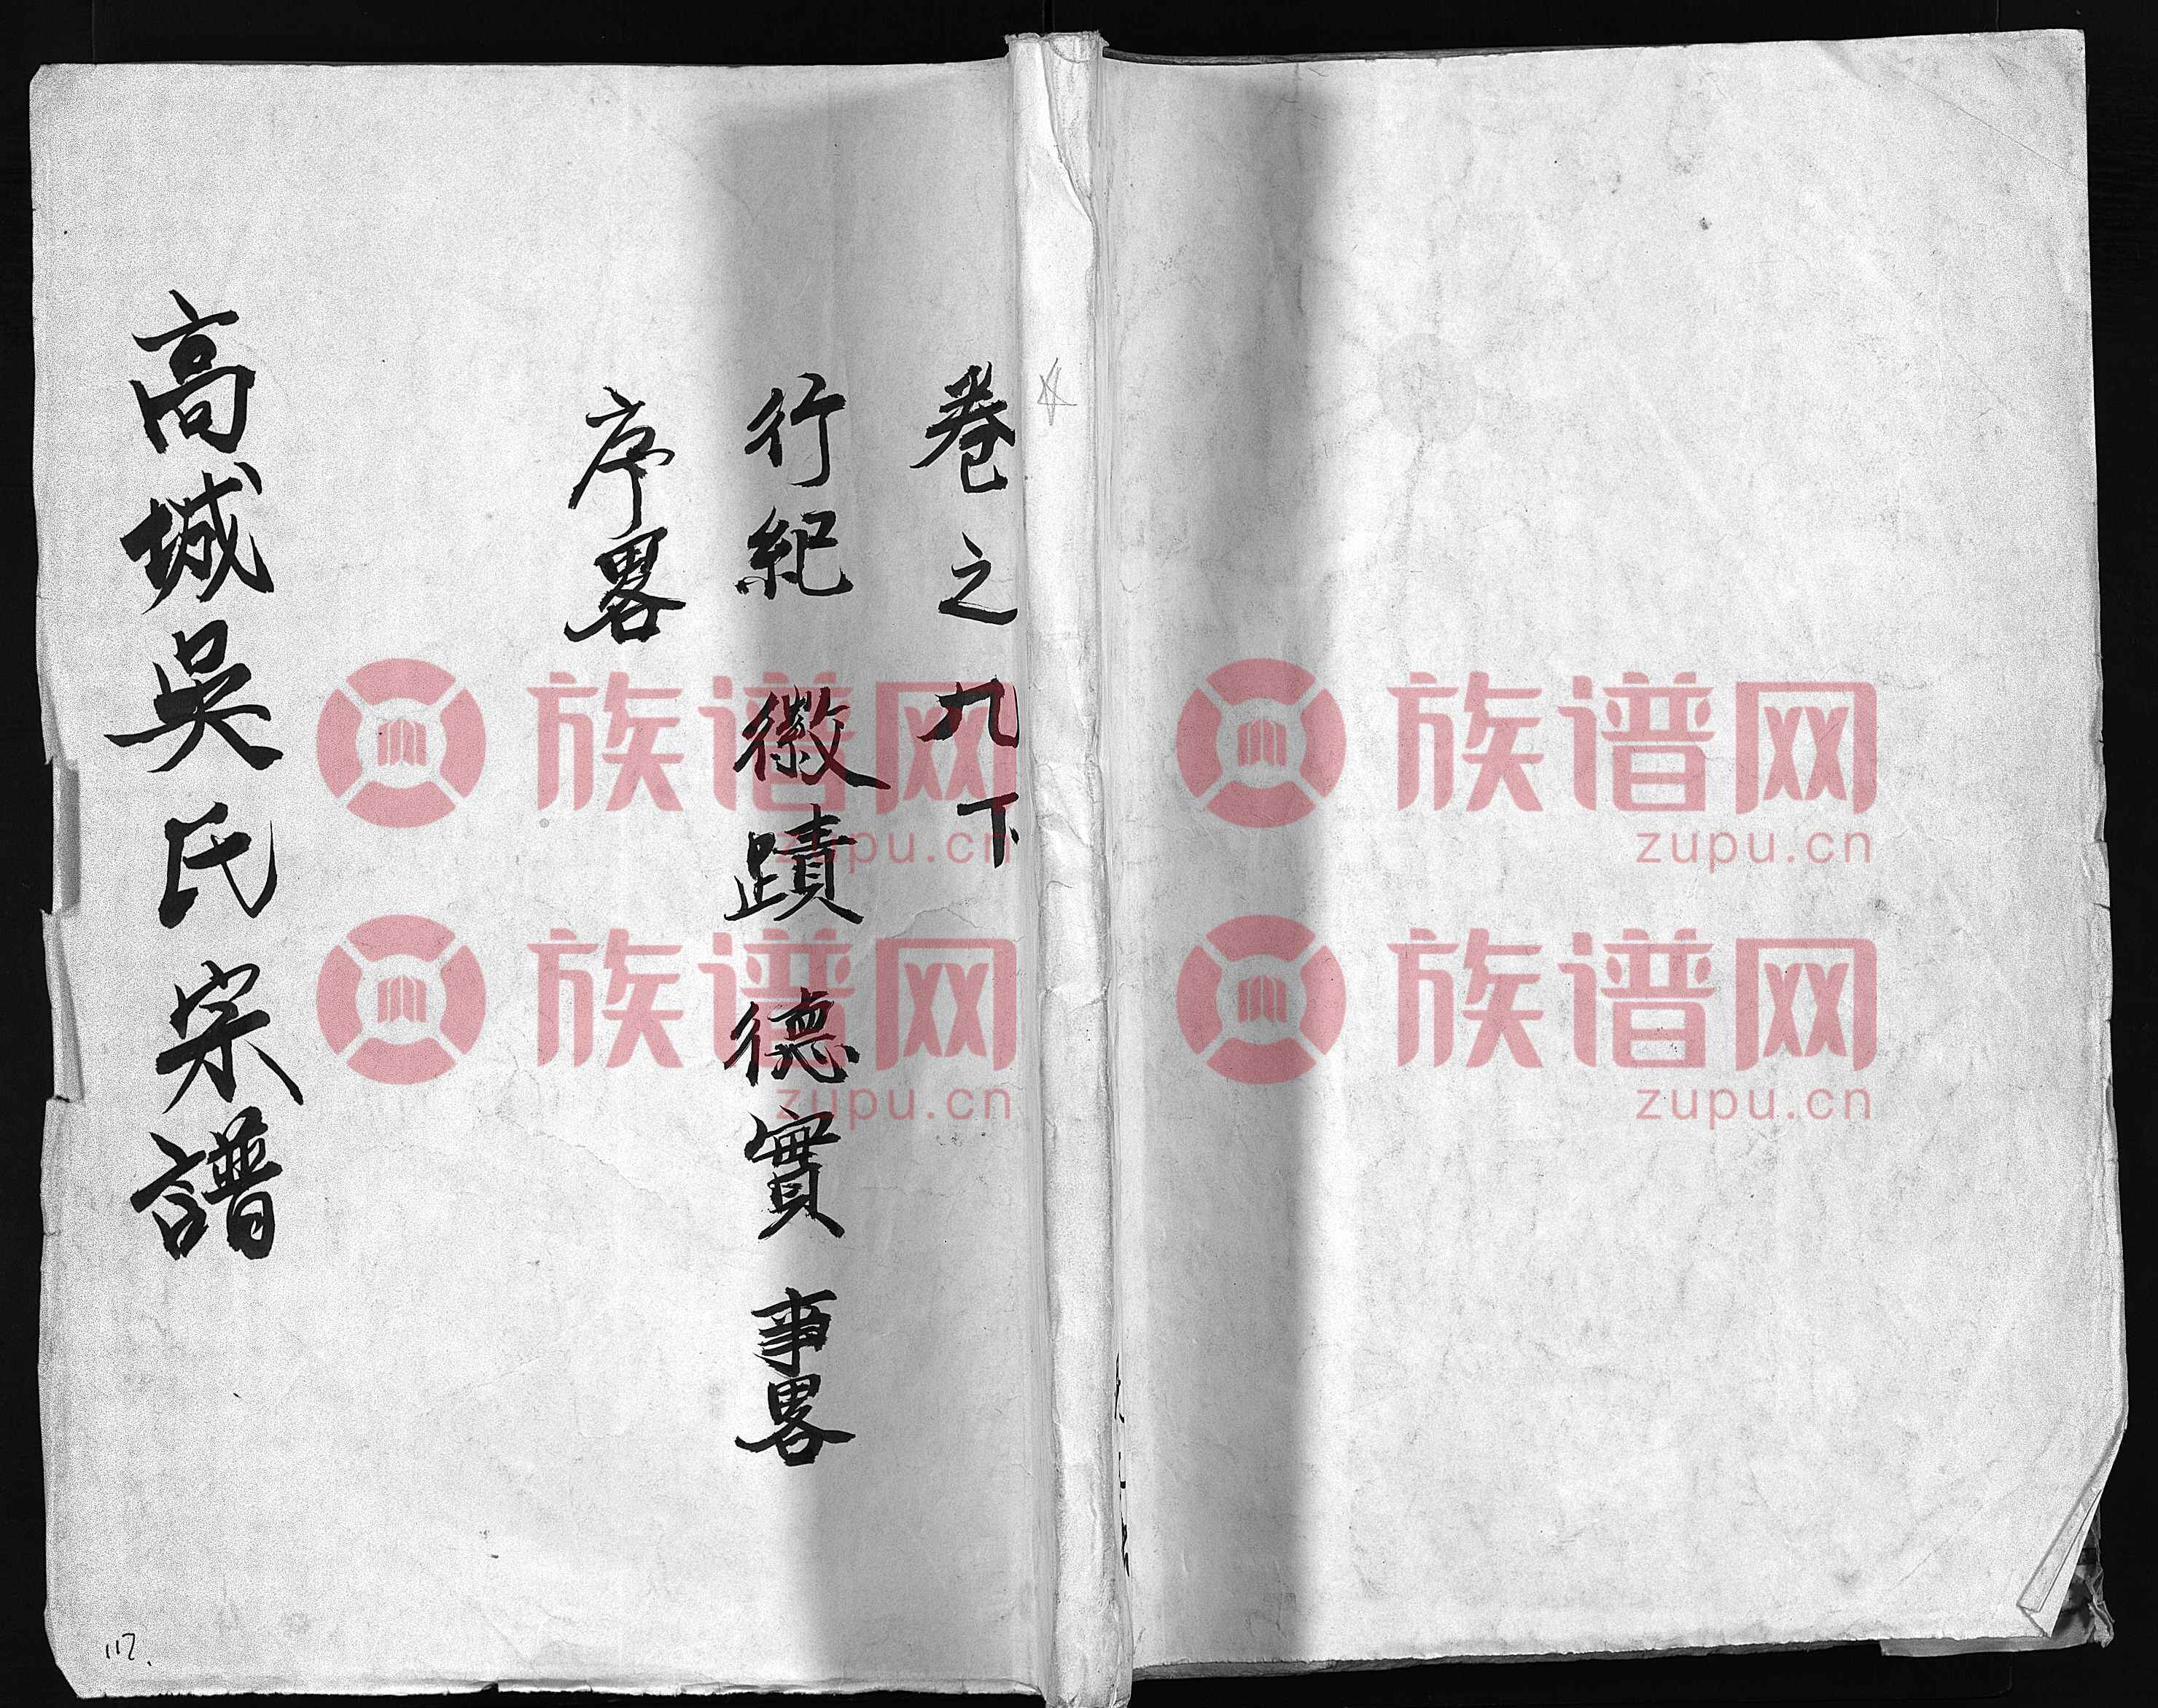 卷之九下
行紀 徽蹟 德實 事畧
序畧
高城吳氏宗譜
117.
族谱网
zupu.cn
族谱网
zupu.cn
族谱网
zupu.cn
族谱网
zupu.cn